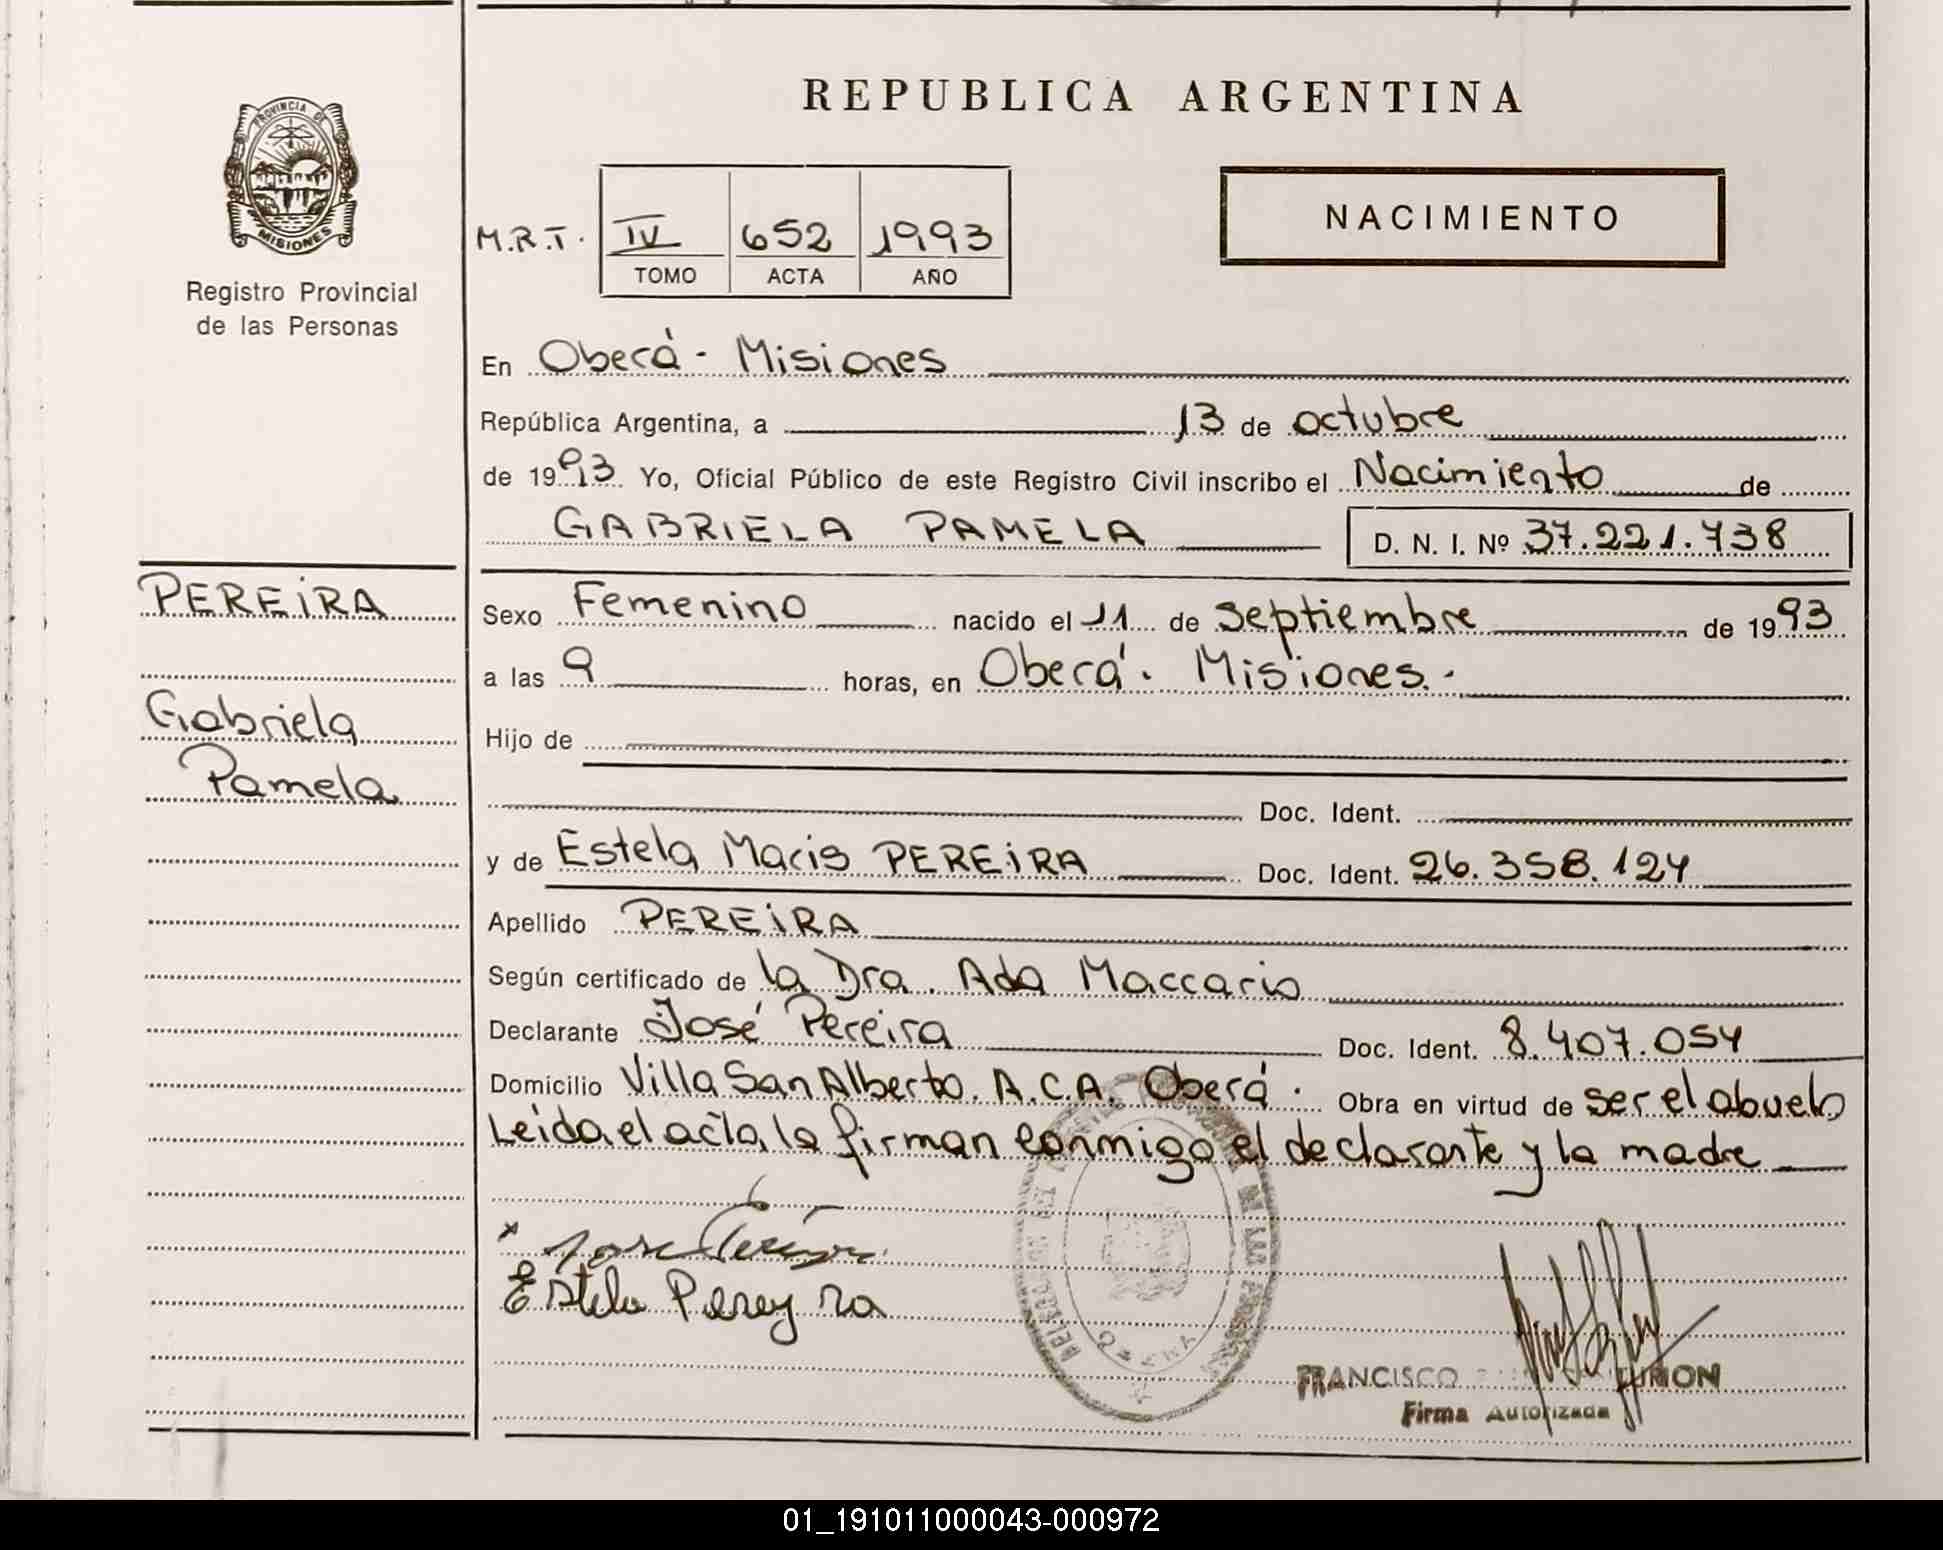 REPUBLICA ARGENTINA
PROVINCIA DE
MISIONES
Registro Provincial
de las Personas
M.R.T. IV 652 1993
TOMO ACTA AÑO
NACIMIENTO
En Oberá - Misiones
República Argentina, a 13 de octubre
de 1993 Yo, Oficial Público de este Registro Civil inscribo el Nacimiento de
GABRIELA PAMELA D. N. I. Nº 37.221.738
PEREIRA
Gabriela
Pamela
Sexo Femenino nacido el 11 de septiembre de 1993
a las 9 horas, en Oberá. Misiones.-
Hijo de
Doc. Ident.
y de Estela Maris PEREIRA Doc. Ident. 26.358.124
Apellido PEREIRA
Según certificado de la Dra. Ada Maccario
Declarante José Pereira Doc. Ident. 8.407.054
Domicilio Villa San Alberto. A.C.A. Oberá. Obra en virtud de ser el abuelo
Leida el acta, la firman conmigo el declarante y la madre
x Jose Pereira
Estela Pereyra
FRANCISCO
Firma Autorizada
01_191011000043-000972